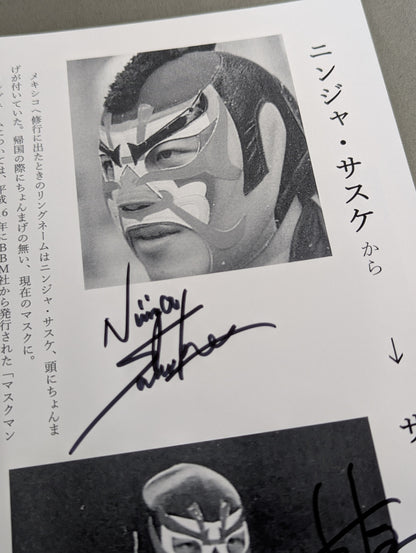 ニンジャ・サスケから
→
サ
メキシコへ修行に出たときのリングネームはニンジャ・サスケ、頭にちょんま
げが付いていた。帰国の際にちょんまげの無い、現在のマスクに。
については、平成16年にBBM社から発行された「マスクマン
Ninja
Sasuke